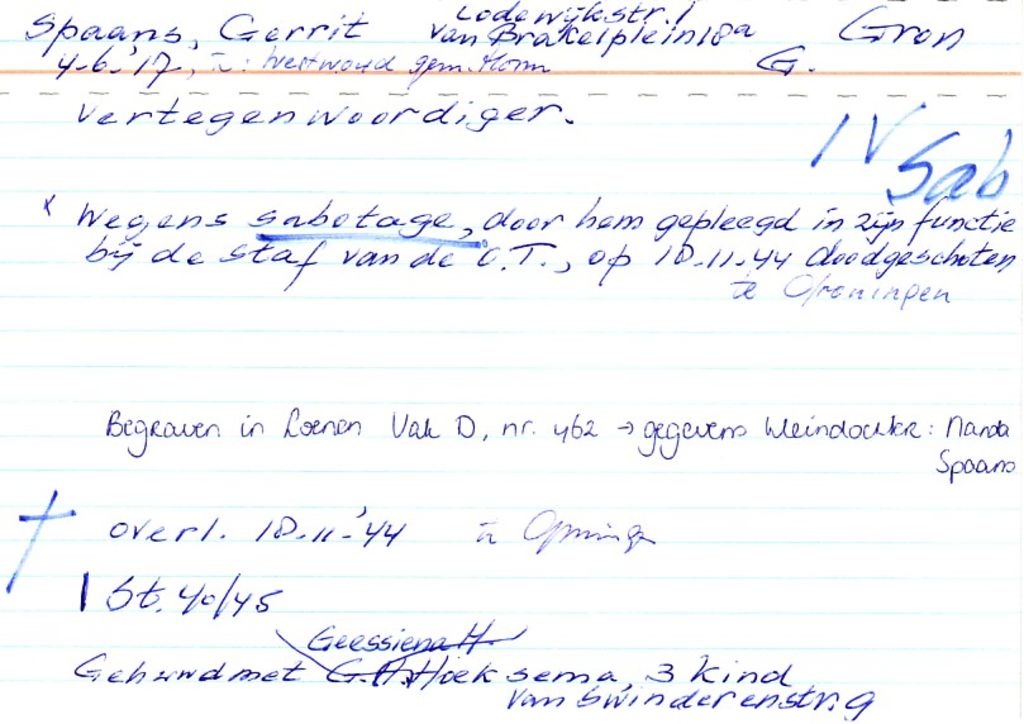 Lodewijkstr. 1
Spaans, Gerrit van Brakelplein 18a Gron
4-6-'17, te: Westwoud gem. Hoorn G.
Vertegenwoordiger.
IV Sab
x Wegens sabotage, door hem gepleegd in zijn functie
bij de staf van de O.T., op 18-11-44 doodgeschoten
te Groningen
Begraven in Loenen Vak D, nr. 462 → gegevens kleindochter: Nanda
Spaans
† overl. 18-11-'44 te Groningen
1 St. 40/45
Geessiena H.
Gehuwd met G.H. Hoeksema, 3 kind
van Swinderenstr. 9